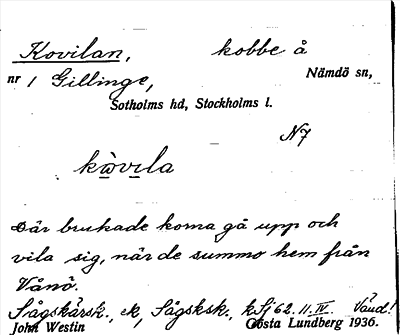 Kovilan, kobbe å
nr 1 Gillinge, Nämdö sn,
Sotholms hd, Stockholms l.
N7
kωvila
Där brukade korna gå upp och
vila sig, när de summo hem från
Vånö.
Sågskärsk., ek, Sågsksk., kSj 62. 11. IV. Vänd!
John Westin Gösta Lundberg 1936.